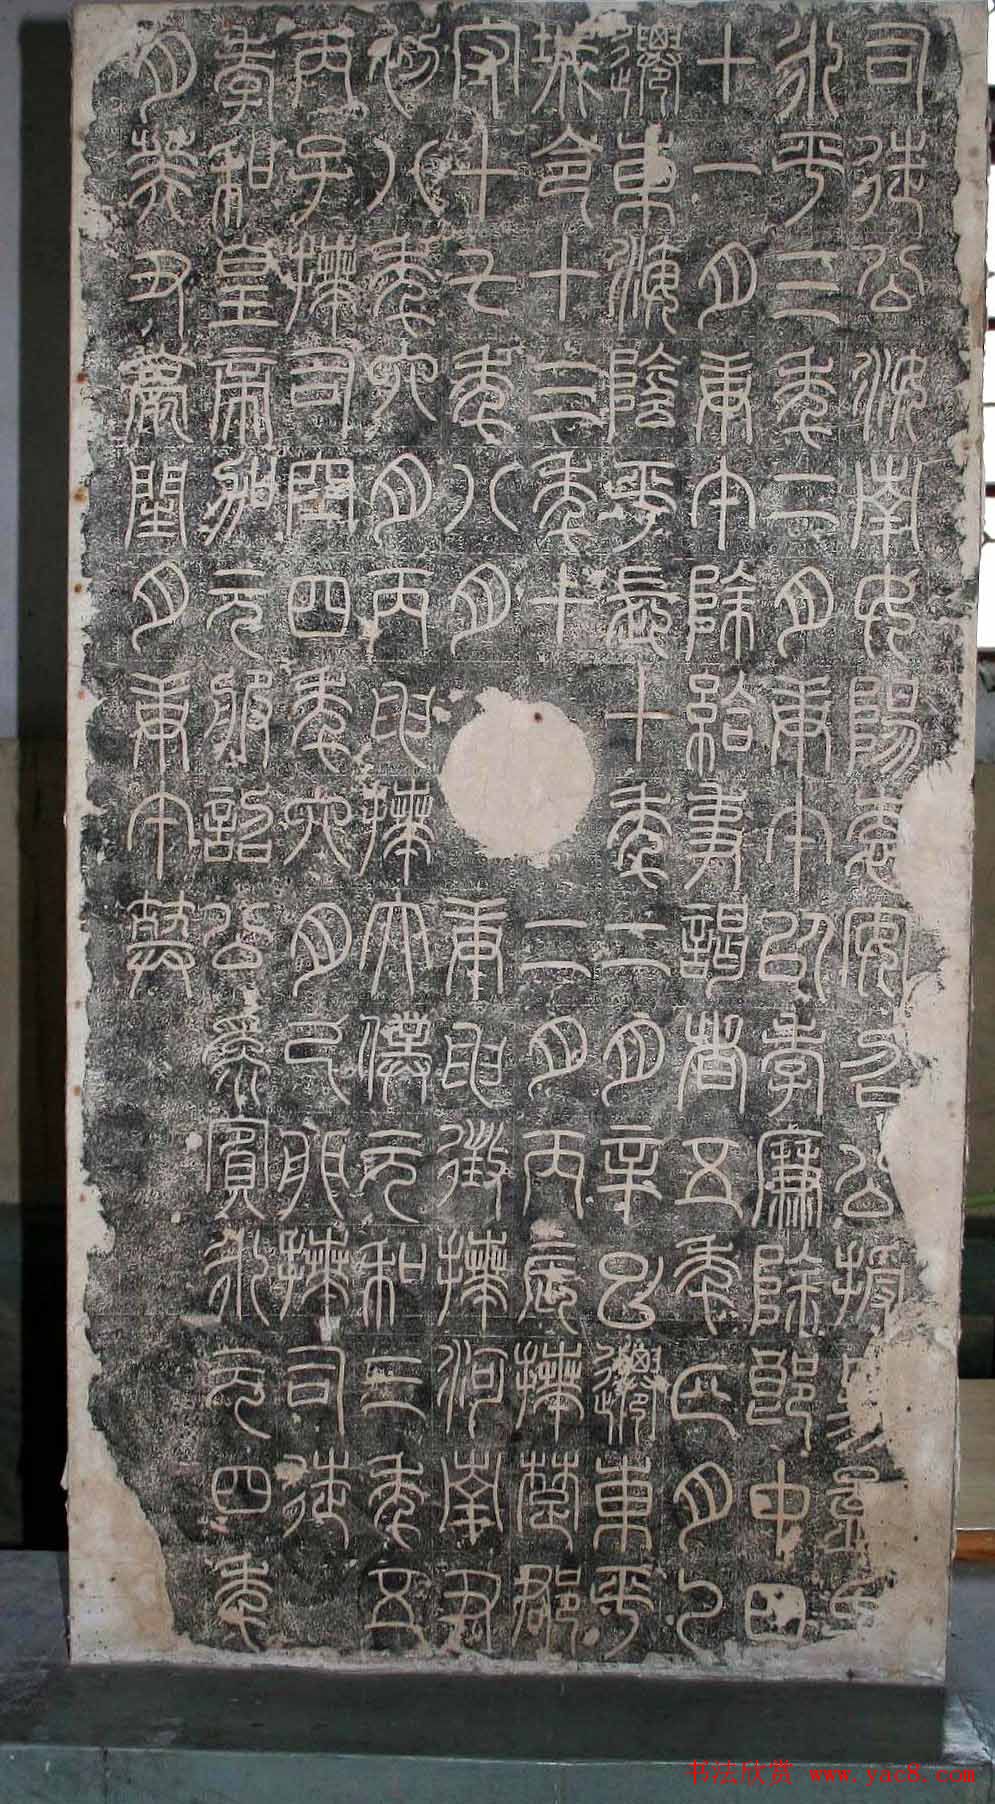 司徒公汝南女陽袁安召公授易孟氏
永平三年二月庚午以孝廉除郎中四
十一月庚午除給事謁者五年正月乙
遷東海陰平長十年二月辛巳遷東平
城令十三年十二月丙辰拜楚郡
守十七年八月庚申徵拜河南尹
初八年六月丙申拜太僕元和三年五
丙子拜司空四年六月己卯拜司徒
孝和皇帝加元服詔公為賓永元四年
月癸丑薨閏月庚午葬
書法欣賞 www.yac8.com